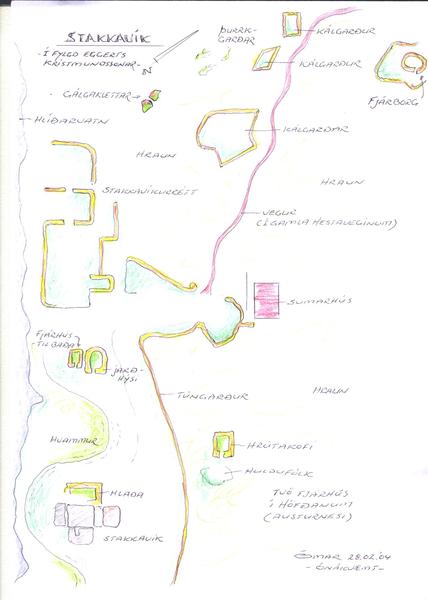 STAKKAVÍK
- Í FYLGD EGGERTS
KRISTMUNDSSONAR -
N
ÞURRK-
GARÐAR
KÁLGARÐUR
KÁLGARÐUR
FJÁRBORG
GÁLGAKLETTAR
HLÍÐARVATN
KÁLGARÐAR
HRAUN
HRAUN
STAKKAVÍKURRÉTT
VEGUR
(Á GAMLA HESTAVEGINUM)
SUMARHÚS
FJÁRHÚS-
TILBAÐA
JARÐ-
HÝSI
TÚNGARÐUR
HRAUN
HVAMMUR
HRÚTAKOFI
HULDUFÓLK
HLAÐA
TVÖ FJÁRHÚS
Í HÖFÐANUM
(AUSTURNESI)
STAKKAVÍK
ÓMAR 28.02.'04
- ÓNÁKVÆMT -